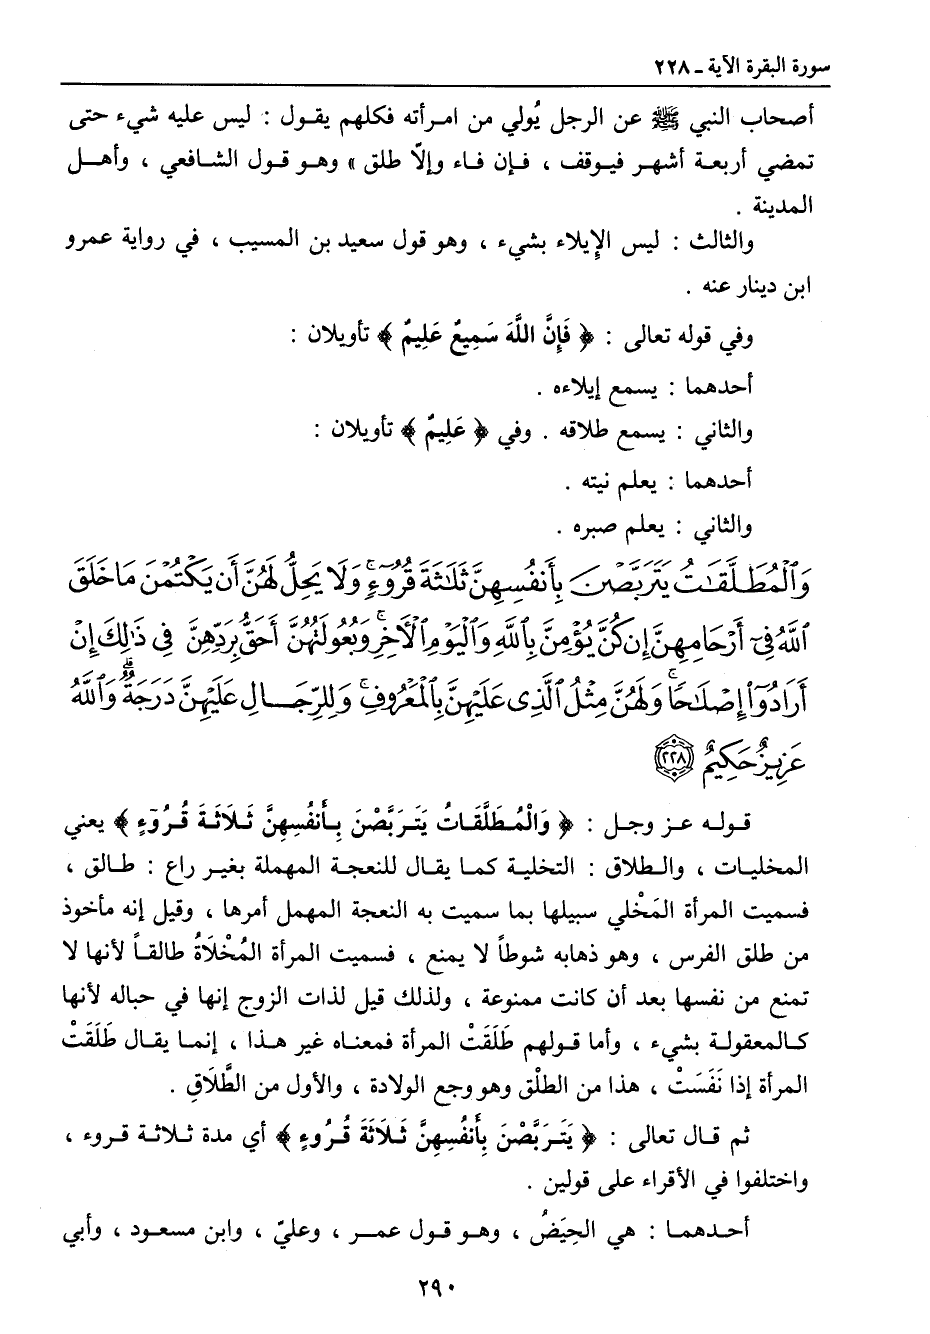 سورة البقرة الآية ـ ٢٢٨
أصحاب النبي ﷺ عن الرجل يُولي من امرأته فكلهم يقول : ليس عليه شيء حتى
تمضي أربعة أشهر فيوقف ، فإن فاء وإلّا طلق » وهو قول الشافعي ، وأهل
المدينة .
والثالث : ليس الإيلاء بشيء ، وهو قول سعيد بن المسيب ، في رواية عمرو
ابن دينار عنه .
وفي قوله تعالى : ﴿ فَإِنَّ اللَّهَ سَمِيعٌ عَلِيمٌ ﴾ تأويلان :
أحدهما : يسمع إيلاءه .
والثاني : يسمع طلاقه . وفي ﴿ عَلِيمٌ ﴾ تأويلان :
أحدهما : يعلم نيته .
والثاني : يعلم صبره .
وَٱلْمُطَلَّقَٰتُ يَتَرَبَّصْنَ بِأَنفُسِهِنَّ ثَلَٰثَةَ قُرُوٓءٍ ۚ وَلَا يَحِلُّ لَهُنَّ أَن يَكْتُمْنَ مَا خَلَقَ
ٱللَّهُ فِىٓ أَرْحَامِهِنَّ إِن كُنَّ يُؤْمِنَّ بِٱللَّهِ وَٱلْيَوْمِ ٱلْأَخِرِ ۚ وَبُعُولَتُهُنَّ أَحَقُّ بِرَدِّهِنَّ فِى ذَٰلِكَ إِنْ
أَرَادُوٓا۟ إِصْلَٰحًا ۚ وَلَهُنَّ مِثْلُ ٱلَّذِى عَلَيْهِنَّ بِٱلْمَعْرُوفِ ۚ وَلِلرِّجَالِ عَلَيْهِنَّ دَرَجَةٌ ۗ وَٱللَّهُ
عَزِيزٌ حَكِيمٌ ٢٢٨
قوله عز وجل : ﴿ وَالْمُطَلَّقَاتُ يَتَرَبَّصْنَ بِأَنفُسِهِنَّ ثَلَاثَةَ قُرُوٓءٍ ﴾ يعني
المخليات ، والطلاق : التخلية كما يقال للنعجة المهملة بغير راع : طالق ،
فسميت المرأة المَخْلي سبيلها بما سميت به النعجة المهمل أمرها ، وقيل إنه مأخوذ
من طلق الفرس ، وهو ذهابه شوطاً لا يمنع ، فسميت المرأة المُخْلَاةُ طالقاً لأنها لا
تمنع من نفسها بعد أن كانت ممنوعة ، ولذلك قيل لذات الزوج إنها في حباله لأنها
كالمعقولة بشيء ، وأما قولهم طَلَقَتْ المرأة فمعناه غير هذا ، إنما يقال طَلَقَتْ
المرأة إذا نَفَسَتْ ، هذا من الطلْق وهو وجع الولادة ، والأول من الطَّلَاقِ .
ثم قال تعالى : ﴿ يَتَرَبَّصْنَ بِأَنفُسِهِنَّ ثَلَاثَةَ قُرُوءٍ ﴾ أي مدة ثلاثة قروء ،
واختلفوا في الأقراء على قولين .
أحدهما : هي الحِيَضُ ، وهو قول عمر ، وعليّ ، وابن مسعود ، وأبي
٢٩٠